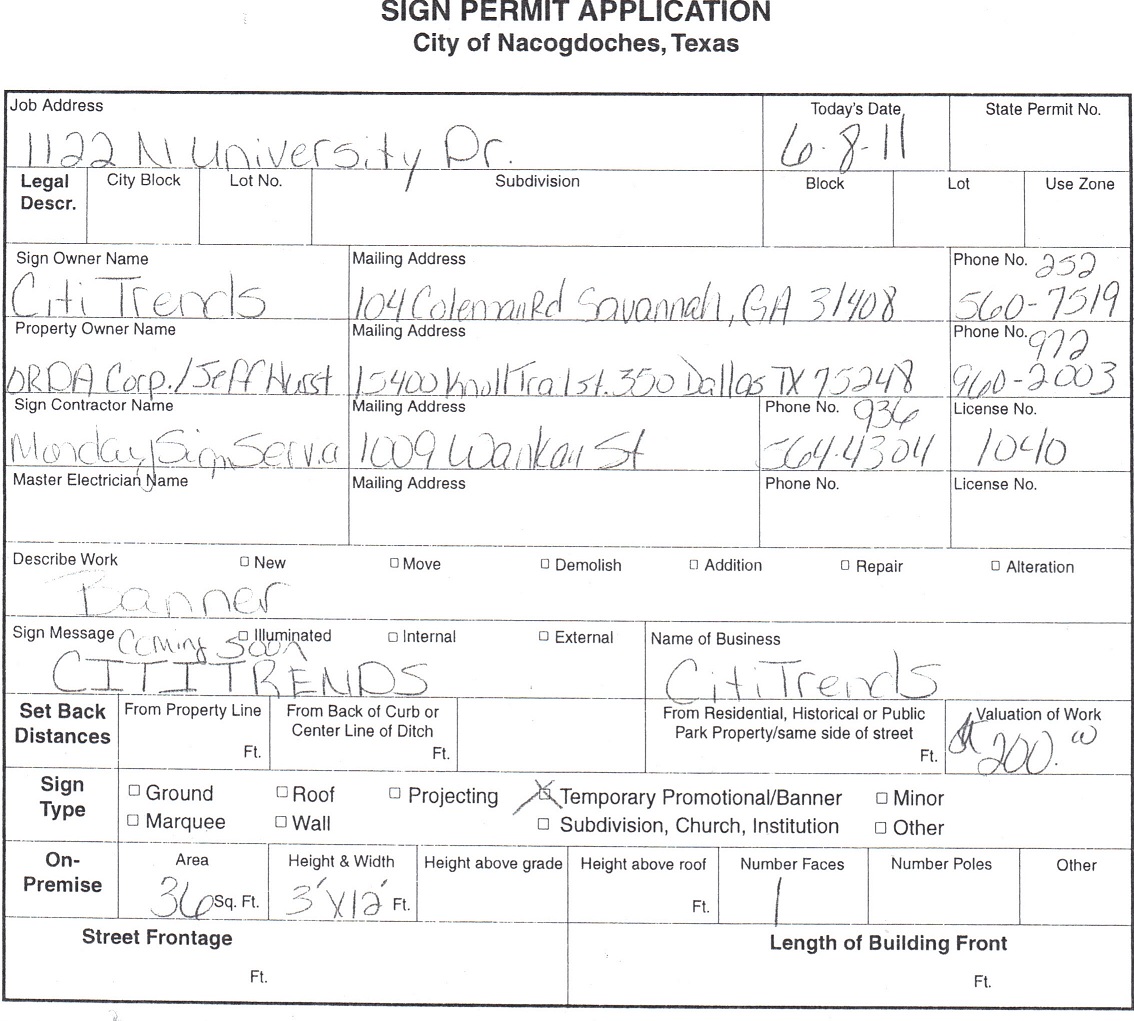 SIGN PERMIT APPLICATION
City of Nacogdoches, Texas
Job Address Today's Date State Permit No.
1122 N University Dr. 6-8-11
Legal Descr. City Block Lot No. Subdivision Block Lot Use Zone
Sign Owner Name Mailing Address Phone No. 252
Citi Trends 104 Coleman Rd Savannah, GA 31408 560-7519
Property Owner Name Mailing Address Phone No. 972
DRDA Corp./Jeff Hurst 15400 Knoll Tral st. 350 Dallas TX 75248 960-2003
Sign Contractor Name Mailing Address Phone No. 936 License No.
Monday Sign 1009 St 564-4304 1040
Master Electrician Name Mailing Address Phone No. License No.
Describe Work ☐ New ☐ Move ☐ Demolish ☐ Addition ☐ Repair ☐ Alteration
Banner
Sign Message Coming Soon ☐ Illuminated ☐ Internal ☐ External Name of Business
CITITRENDS CitiTrends
Set Back From Property Line From Back of Curb or From Residential, Historical or Public Valuation of Work
Distances Center Line of Ditch Park Property/same side of street $200.00
Ft. Ft. Ft.
Sign ☐ Ground ☐ Roof ☐ Projecting ☒ Temporary Promotional/Banner ☐ Minor
Type ☐ Marquee ☐ Wall ☐ Subdivision, Church, Institution ☐ Other
On- Area Height & Width Height above grade Height above roof Number Faces Number Poles Other
Premise 36 Sq. Ft. 3'X12' Ft. Ft. 1
Street Frontage Length of Building Front
Ft. Ft.